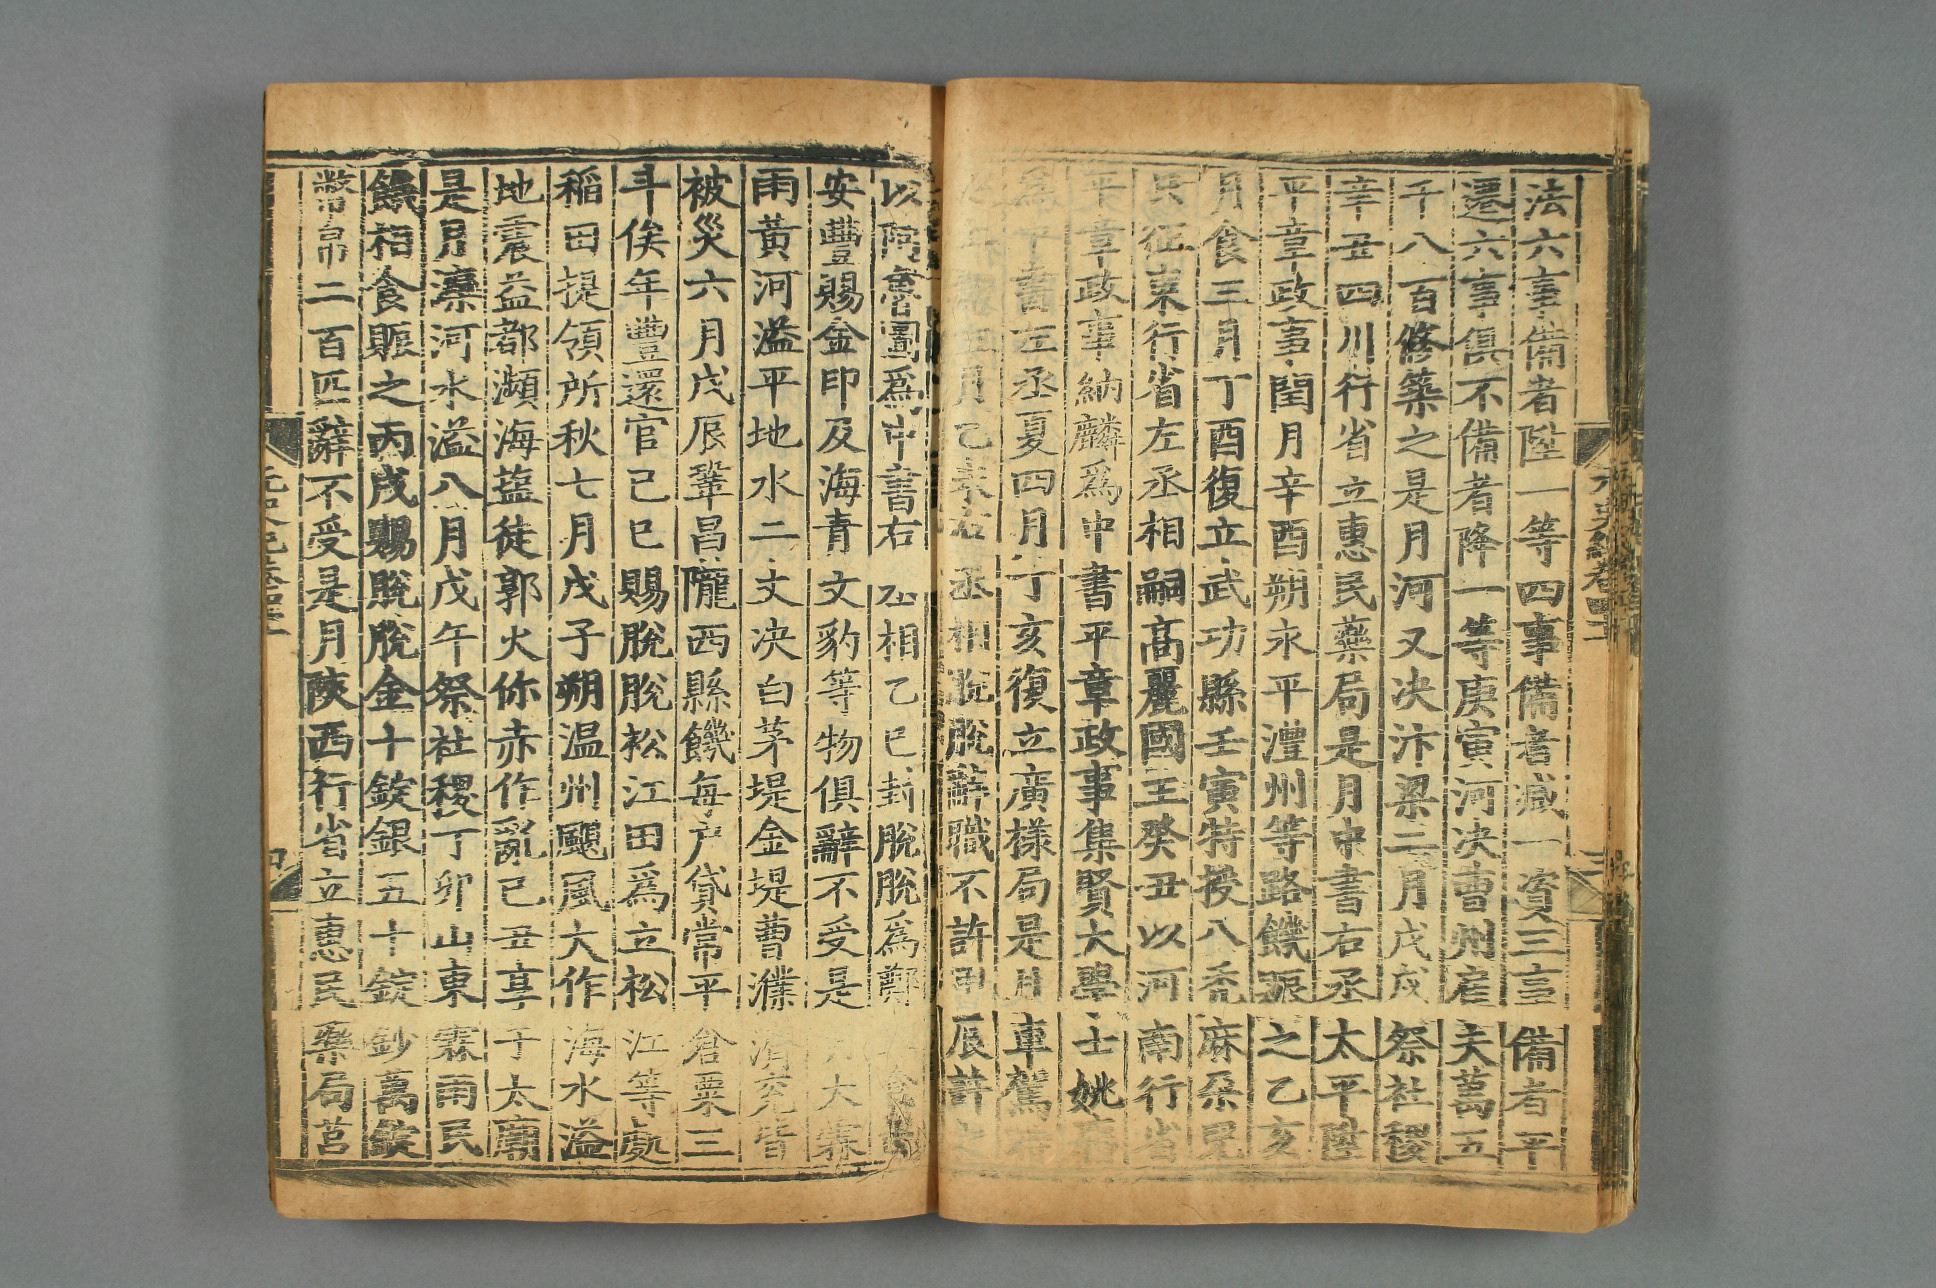 法六事備者陞一等四事備者減一資三事備者平
遷六事俱不備者降一等庚寅河決曹州雇夫萬五
千八百修築之是月河又决汴梁二月戊戌祭社稷
辛丑四川行省立惠民藥局是月中書右丞太平陞
平章政事閏月辛酉朔永平澧州等路饑賑之乙亥
月食三月丁酉復立武功縣壬寅特授八禿麻朶兒
只征東行省左丞相嗣高麗國王癸丑以河南行省
平章政事納麟爲中書平章政事集賢大學士姚庸
爲中書左丞夏四月丁亥復立廣樣局是月車駕
五月乙未右丞相脫脫辭職不許甲辰許之
以阿魯圖爲中書右丞相乙巳封脫脫爲鄭
安豐賜金印及海青文豹等物俱辭不受是大霖
雨黃河溢平地水二丈决白茅堤金堤曹濮濟兖皆
被災六月戊辰鞏昌隴西縣饑每戶貸常平倉粟三
斗俟年豐還官己巳賜脫脫松江田爲立松江等處
稻田提領所秋七月戊子朔温州颶風大作海水溢
地震益都瀕海鹽徒郭火你赤作亂己丑享于太廟
是月灤河水溢八月戊午祭社稷丁卯山東霖雨民
饑相食賑之丙戌賜脫脫金十錠銀五十錠鈔萬錠
幣帛二百匹辭不受是月陝西行省立惠民藥局莒